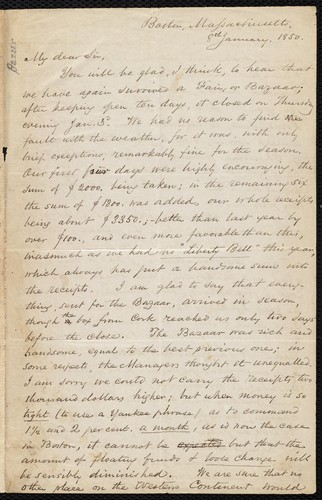 Boston, Massachusetts,
January, 1850.
My dear Sir,
You will be glad, I think, to hear that
we have again survived a Fair, or Bazaar;
after keeping open ten days, it closed on Thursday
evening Jan. 3. We had no reason to find
fault with the weather, for it was, with only
brief exceptions, remarkably fine for the season.
Our first four days were highly encouraging, the
sum of $2000. being taken; in the remaining six
the sum of $1300. was added, our whole receipts
being about $3350;—better than last year by
over $100. and even more favorable than this,
inasmuch as we had no "Liberty Bell" this year,
which always has put a handsome sum into
the receipts. I am glad to say that every-
thing sent for the Bazaar, arrived in season,
though the box from Cork reached us only two days
before the close. The Bazaar was rich and
handsome, equal to the best previous one; in
some respects, the Managers thought it unequalled.
I am sorry we could not carry the receipts two
thousand dollars higher; but when money is so
tight (to use a Yankee phrase) as to command
1½ and 2 per cent. a month, as is now the case
in Boston, it cannot be expected but that the
amount of floating funds & loose change will
be sensibly diminished. We are sure that no
other place on the Western Continent would